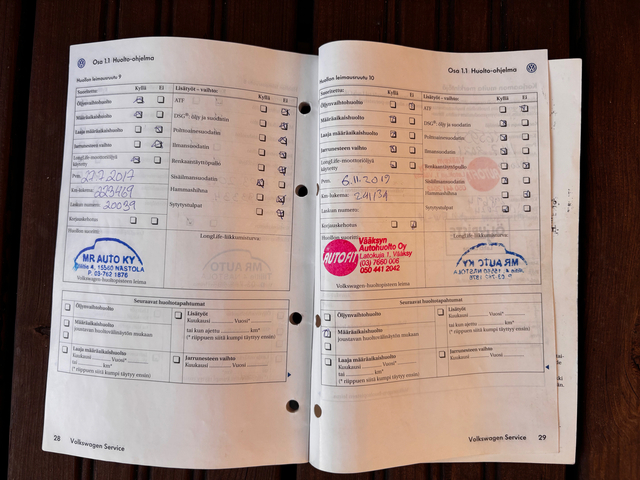 Osa 1.1 Huolto-ohjelma
Huollon leimausruutu 9
Suoritettu: Kyllä Ei
Öljynvaihtohuolto
Määräaikaishuolto
Laaja määräaikaishuolto
Jarrunesteen vaihto
LongLife-moottoriöljyä
käytetty
Pvm. 27.7.2017
Km-lukema: 223469
Laskun numero: 20039
Korjauskehotus
Lisätyöt - vaihto: Kyllä Ei
ATF
DSG®- öljy ja suodatin
Polttoainesuodatin
Ilmansuodatin
Renkaantäyttöpullo
Sisäilmansuodatin
Hammashihna
Sytytystulpat
Huollon suoritti:
LongLife-liikkumisturva:
MR AUTO KY
4, 15560 NASTOLA
P. 03-762 1876
MR AUTO
Volkswagen-huoltopisteen leima
Seuraavat huoltotapahtumat
Öljynvaihtohuolto
Määräaikaishuolto
joustavan huoltovälinäytön mukaan
Laaja määräaikaishuolto
Kuukausi Vuosi
tai km*
(* riippuen siitä kumpi täyttyy ensin)
Lisätyöt
Kuukausi Vuosi*
tai kun ajettu km*
(* riippuen siitä kumpi täyttyy ensin)
Jarrunesteen vaihto
Kuukausi Vuosi
28 Volkswagen Service
Osa 1.1 Huolto-ohjelma
Huollon leimausruutu 10
Suoritettu: Kyllä Ei
Öljynvaihtohuolto
Määräaikaishuolto
Laaja määräaikaishuolto
Jarrunesteen vaihto
LongLife-moottoriöljyä
käytetty
Pvm. 6.11.2019
Km-lukema: 241134
Laskun numero:
Korjauskehotus
Lisätyöt - vaihto: Kyllä Ei
ATF
DSG®- öljy ja suodatin
Polttoainesuodatin
Ilmansuodatin
Renkaantäyttöpullo
Sisäilmansuodatin
Hammashihna
Sytytystulpat
Huollon suoritti:
LongLife-liikkumisturva:
AUTOFIT
Vääksyn
Autohuolto Oy
Laitokuja 1, Vääksy
(03) 7660 006
050 441 2042
MR AUTO KY
Volkswagen-huoltopisteen leima
Seuraavat huoltotapahtumat
Öljynvaihtohuolto
Määräaikaishuolto
joustavan huoltovälinäytön mukaan
Laaja määräaikaishuolto
Kuukausi Vuosi*
tai km*
(* riippuen siitä kumpi täyttyy ensin)
Lisätyöt
Kuukausi Vuosi*
tai kun ajettu km*
(* riippuen siitä kumpi täyttyy ensin)
Jarrunesteen vaihto
Kuukausi Vuosi
Volkswagen Service 29